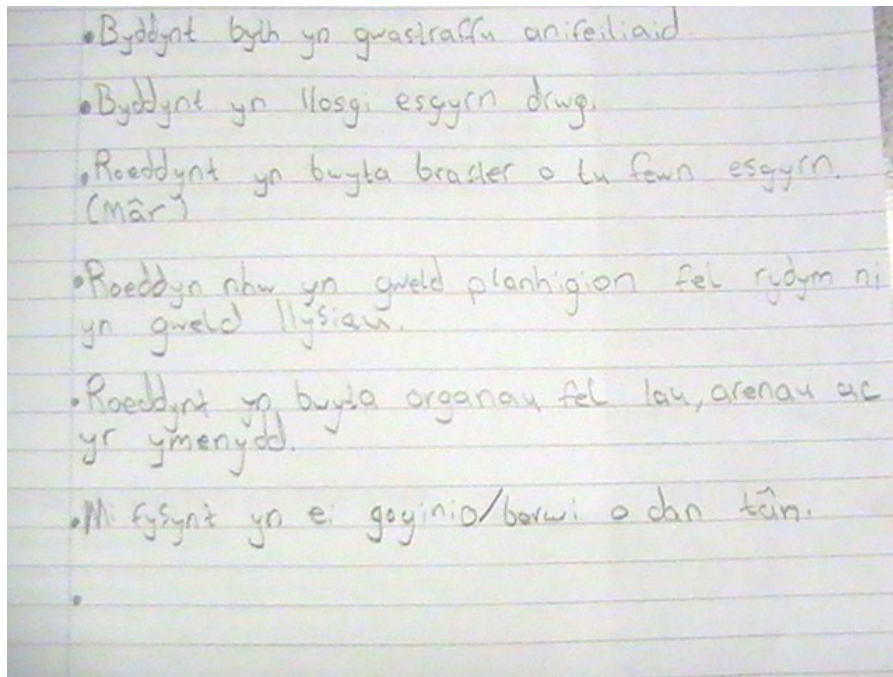 •Byddynt byth yn gwastraffu anifeiliaid
•Byddynt yn llosgi esgyrn drwg.
•Roeddynt yn bwyta braster o tu fewn esgyrn.
(mâr)
•Roeddyn nhw yn gweld planhigion fel rydym ni
yn gweld llysiau.
•Roeddynt yn bwyta organau fel Iau, arenau ac
yr ymenydd.
•Mi fysynt yn ei goginio/berwi o dan tân.
•